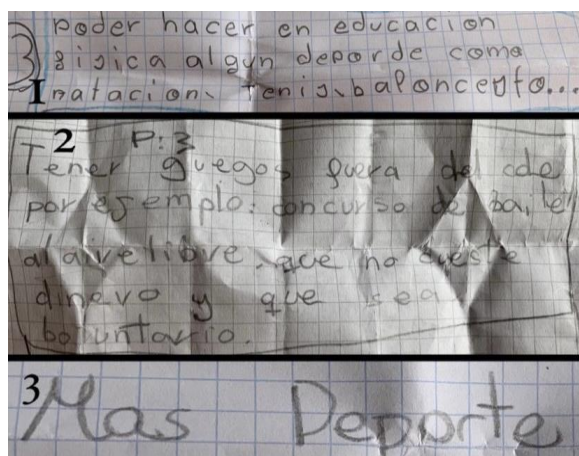 poder hacer en educacion
3 gisica algun deporde como
1 natacion, tenis, baloncesto...
2 P: 3
Tener guegos guera del cole
por egemplo: concurso de baile
al aire libre, que no cueste
dinero y que sea
boluntario.
3 Mas Deporte